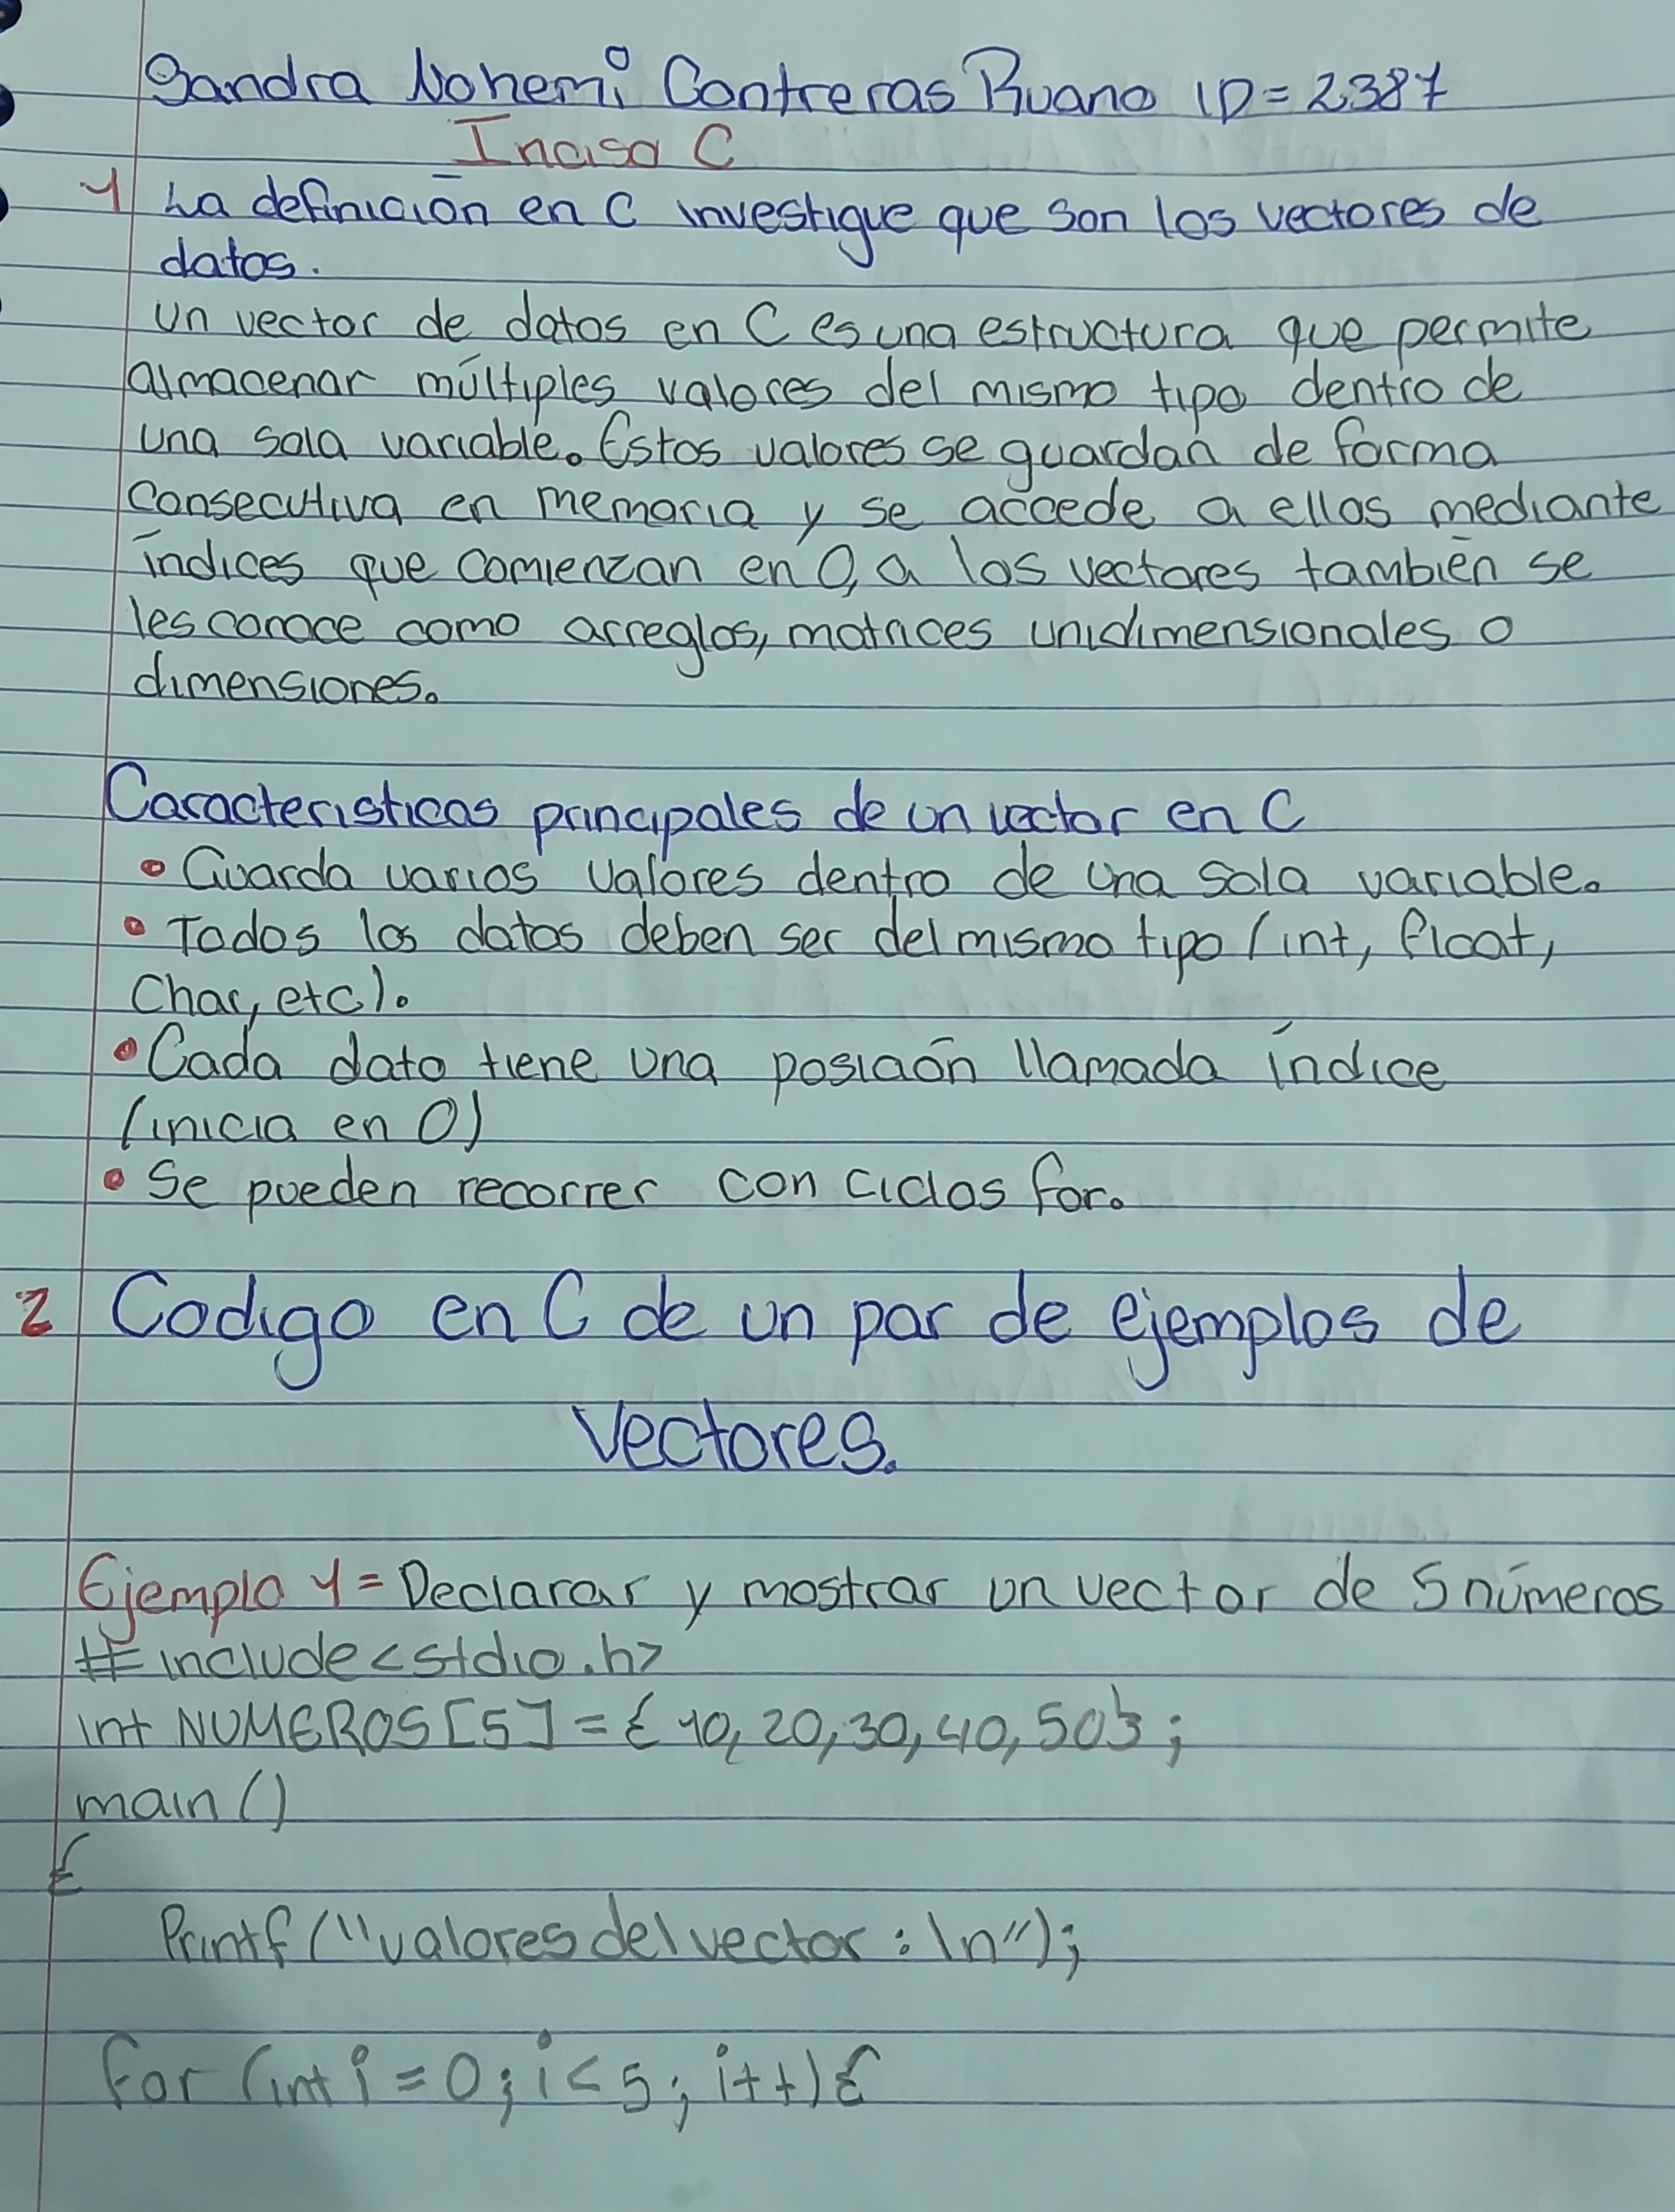 Sandra Nohemi Contreras Ruano ID=2387
Inciso C
1 La definición en C investigue que son los vectores de
datos.
Un vector de datos en C es una estructura que permite
almacenar múltiples valores del mismo tipo dentro de
una sola variable. Estos valores se guardan de forma
consecutiva en memoria y se accede a ellos mediante
índices que comienzan en 0, a los vectores también se
les conoce como arreglos, matrices unidimensionales o
dimensiones.
Caracteristicas principales de un vector en C
• Guarda varios valores dentro de una sola variable.
• Todos los datos deben ser del mismo tipo (int, float,
Char, etc).
• Cada dato tiene una posición llamada índice
(inicia en 0)
• Se pueden recorrer con ciclos for.
2 Codigo en C de un par de ejemplos de
Vectores.
Ejemplo 1= Declarar y mostrar un vector de 5 números
#include<stdio.h>
int NUMEROS[5]={10,20,30,40,50};
main()
{
Printf("valores del vector:\n");
for (int i=0; i<5; i++){